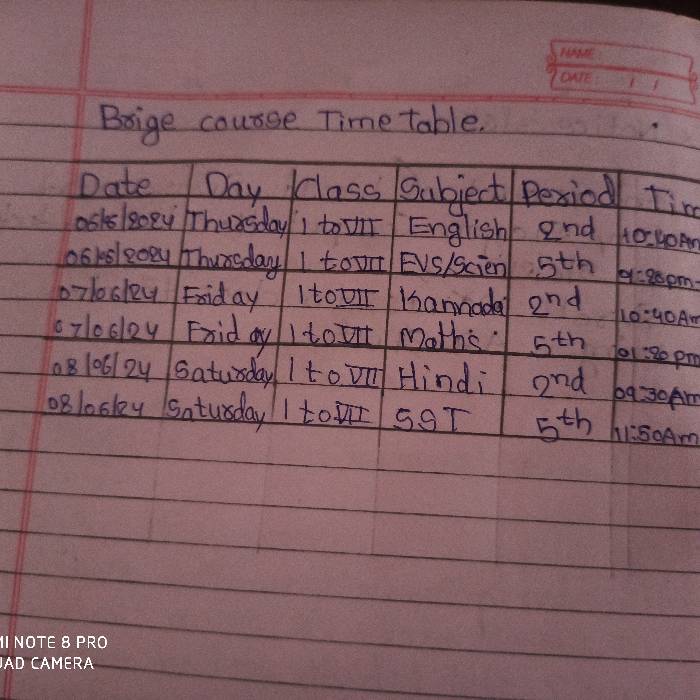 NAME:
DATE: / /
Brige course Time table.
Date Day Class Subject Period Tim
Thursday 1 to VII English 2nd 10:40Am
Thursday 1 to VII EVS/Scien 5th
07/06/24 Friday 1 to VII Kannada 2nd 10:40Am
07/06/24 Friday 1 to VII Maths 5th 01:20pm
08/06/24 Saturday 1 to VII Hindi 2nd 09:30Am
08/06/24 Saturday 1 to VII SST 5th 11:50Am
MI NOTE 8 PRO
UAD CAMERA